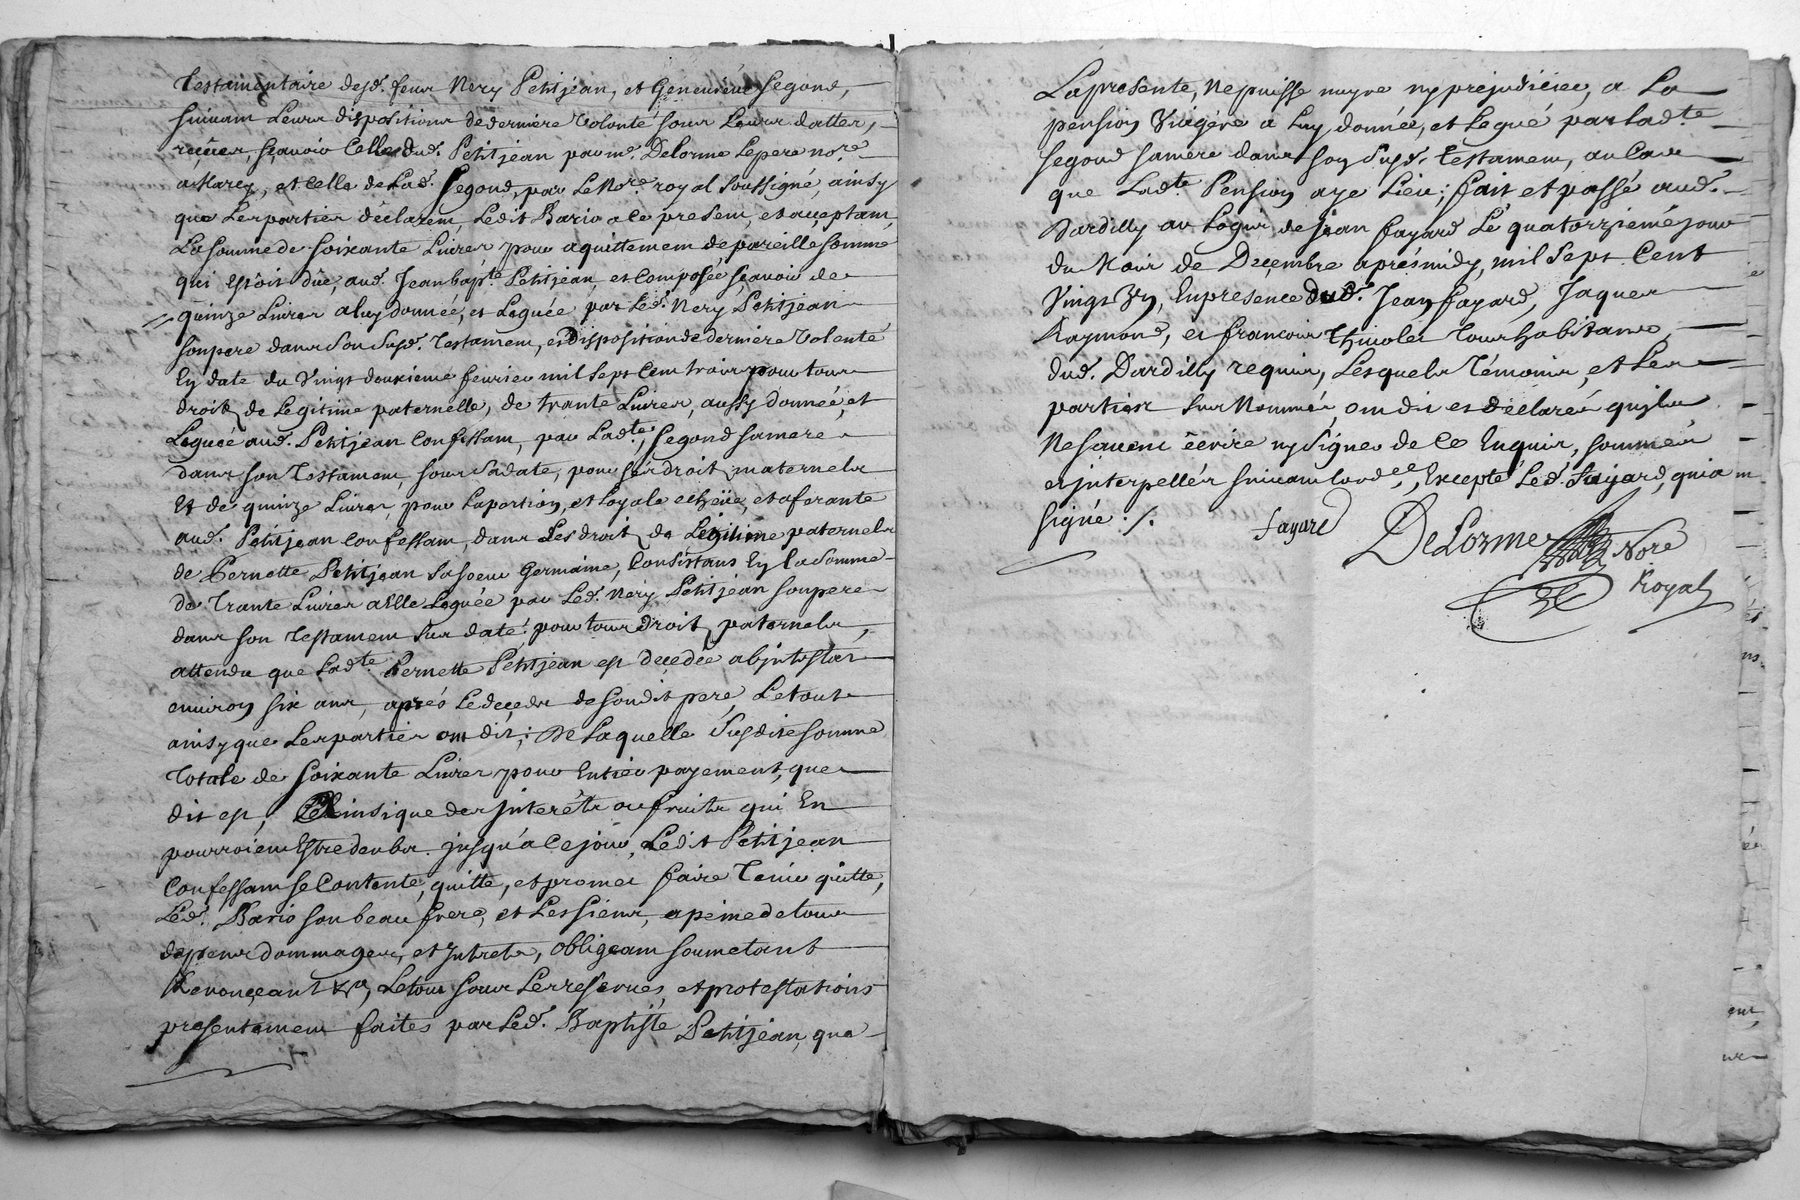 Testamentaire desd. feus Nery Petitjean, et Genevieve Segond,
suivant Leurs dispositions de derniere Volonté sous Leurs dattes,
receües, sçavoir Celle dud. Petitjean par me. Delorme Le pere nore.
a Marcy, et Celle de Lad. Segond, par Le Nore royal soussigné, ainsy
que Les parties déclarent, Ledit Bario a ce present, et acceptant,
La somme de soixante Livres pour aquittement de pareille somme
qui Estoit düe, aud. Jean bapte. Petitjean, et Composée, sçavoir de
quinze Livres a luy donnée, et Leguée par Led. Nery Petitjean
son pere dans son susd. Testament, et Disposition de derniere Volenté
En date du Vingt deuxieme fevrier mil sept Cent trois pour tous
droits de Legitime paternelle, de trante Livres, aussy donnée, et
Leguée aud. Petitjean Confessant, par Ladte. Segond sa mere
dans son Testament, sous sa date, pour ses droits maternels
Et de quinze Livres, pour La portion, et Loyale echeüe, et aferante
aud. Petitjean Confessant, dans Les droits de Legitime paternels
de Pernette Petitjean sa soeur Germaine, Consistans En la somme
de Trante Livres a Elle Leguée par Led. Nery Petitjean son pere
dans son Testament sus daté, pour tous droits paternels,
attendu que Ladte. Pernette Petitjean est decedée abjntestat
environ six ans, aprés Le deceds de son dit pere, Le tout
ainsy que Les parties ont dit; De Laquelle susdite somme
Totale de soixante Livres pour Entier payement, que
dit est, Et ainsi que des jnterêts ou fruits qui En
pourroient Estre deubs jusqu'a Ce jour, Ledit Petitjean
Confessant se Contente, quitte, et promet faire Tenir quitte,
Led. Bario son beau frere, et Les siens, a peine de tous
depens dommages, et jntrets, obligeant soumetant
Renonçeant &a, Le tout sous Les reserves, et protestations
presentement faites par Led. Baptiste Petitjean, que
La presente, Ne puisse nuyre ny prejudicier, a La
pension Viagere a Luy donnée, et Legué par Ladte.
Segond sa mere dans son susd. Testament, au Cas
que Ladte Pension aye Lieu; fait et passé aud.
Dardilly au Logis de jean fayard Le quatorzieme jour
du Mois de Decembre aprésmidy, mil Sept Cent
Vingt Un, En presence dud. Jean fayard, Jaques
Raymond, et françois Thivolet Tous habitans
dud. Dardilly requis, Lesquels Témoins, et Les
parties sus Nommés, ont dit et déclaré qu'ils
Ne savent écrire ny signer de Ce Enquis, sommés
et jnterpellés suivant Lordce, Excepté Led. fayard, qui a
signé ./.
fayard
DeLorme
Nore
Royal